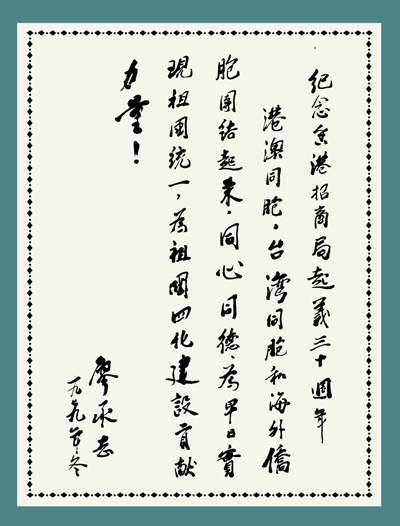 纪念香港招商局起義三十週年
港澳同胞，台灣同胞和海外僑
胞團结起来，同心同德、为早日實
現祖國統一，为祖國四化建設貢献
力量！
廖承志
一九七九年冬